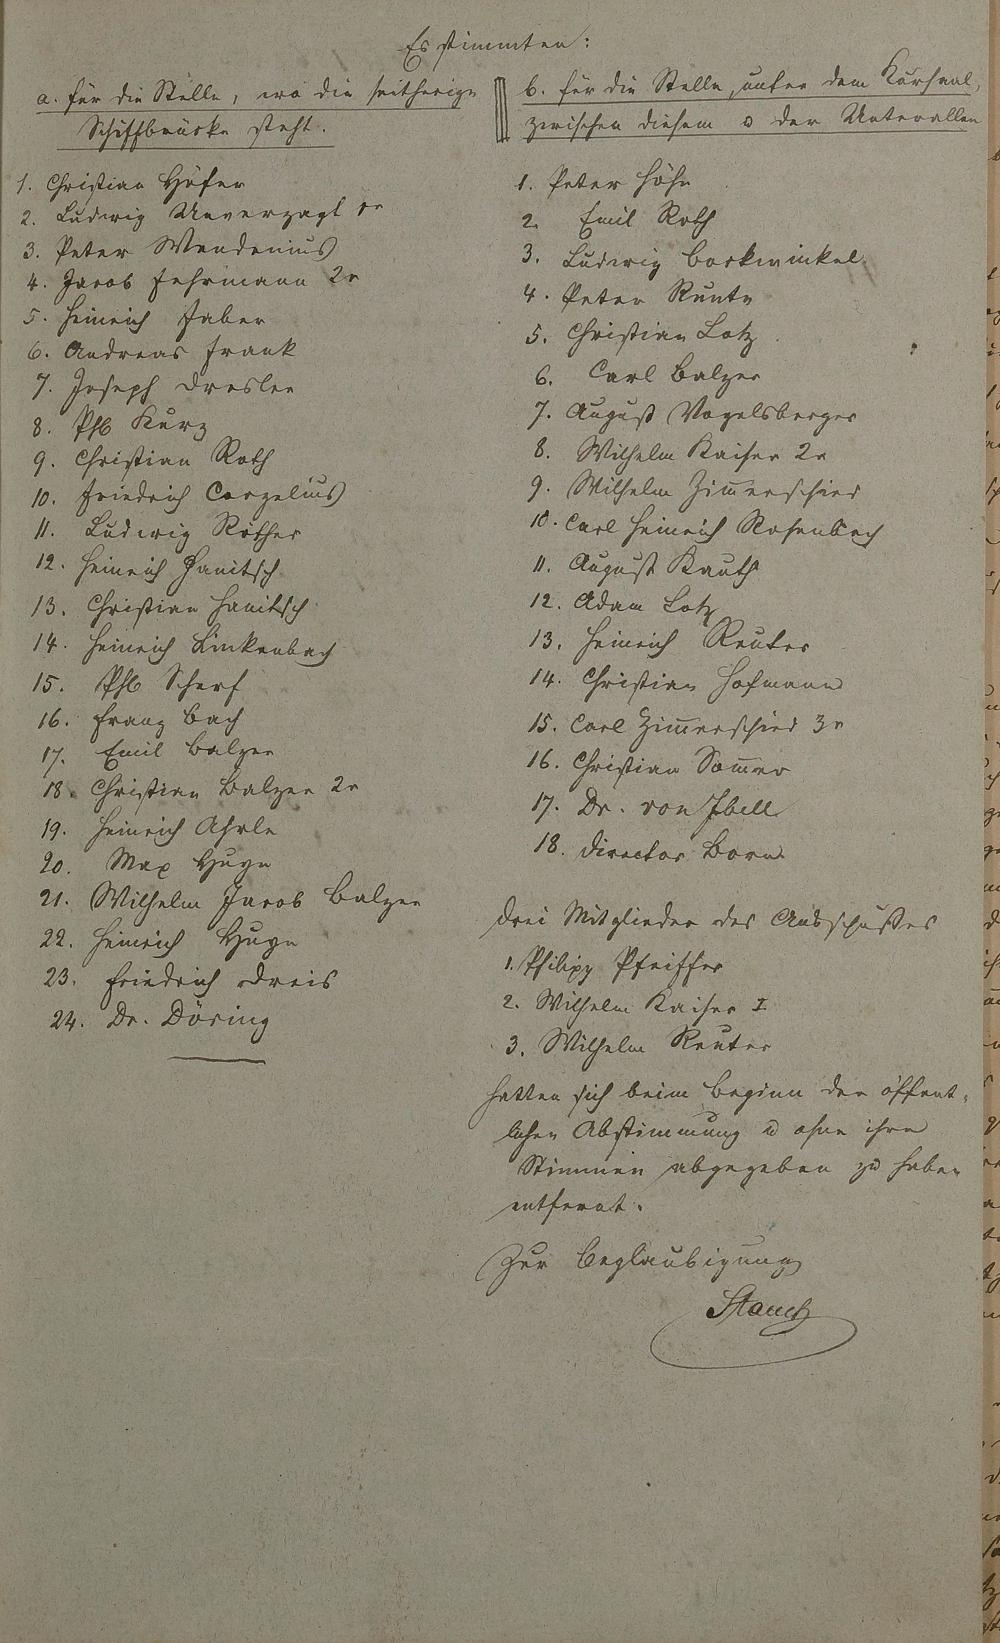 Es stimmten:
a. für die Stelle, wo die seitherige
Schiffbrücke steht.
1. Christian Höfer
2. Ludwig Unverzagt
3. Peter Wendenius
4. Jacob Fehrmann 2r
5. Heinrich Faber
6. Andreas Frank
7. Joseph Dresler
8. Phb Kurz
9. Christian Roth
10. Friedrich Corzelius
11. Ludwig Röther
12. Heinrich Hanitsch
13. Christian Hanitsch
14. Heinrich Linkenbach
15. Phb Scherf
16. Franz Bach
17. Emil Balzer
18. Christian Balzer 2r
19. Heinrich Ahrle
20. Max Huyn
21. Wilhelm Jacob Balzer
22. Heinrich Huyn
23. Friedrich Dreis
24. Dr. Döring
b. für die Stelle, unter dem Kursaal,
zwischen diesem u der Unterallee
1. Peter Höhn
2. Emil Roth
3. Ludwig Borkwinkel
4. Peter Runtz
5. Christian Lotz
6. Carl Balzer
7. August Vogelsberger
8. Wilhelm Kaiser 2r
9. Wilhelm Zim̅erschied
10. Carl Heinrich Rosenbach
11. August Kauth
12. Adam Lotz
13. Heinrich Reuter
14. Christian Hofmann
15. Carl Zim̅erschied 3r
16. Christian Som̅er
17. Dr. von Ibell
18. Director Born
Drei Mitglieder des Ausschußes
1. Philipp Pfeiffer
2. Wilhelm Kaiser I
3. Wilhelm Reuter
hatten sich beim Beginn der öffent-
lichen Abstimmung u ohne ihre
Stimmen abgegeben zu haben
entfernt.
Zur Beglaubigung
Stauch